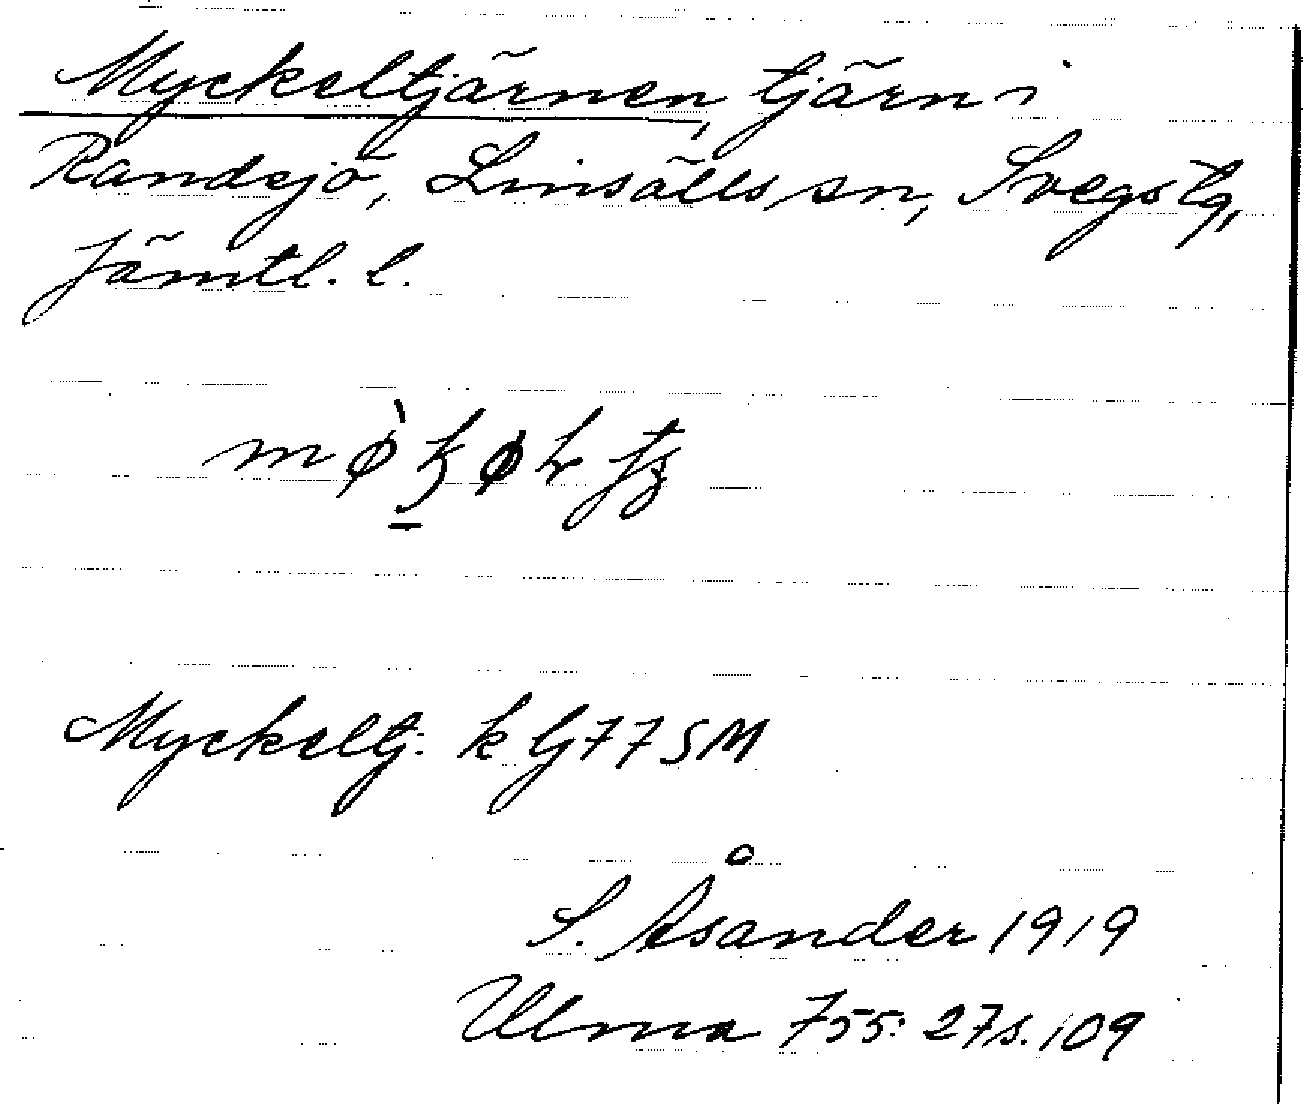 Myckeltjärnen, tjärn i
Randsjö, Linsälls sn, Svegs tg,
Jämtl. l.
Myckeltj. k G77SM
S. Åsander 1919
Ulma 755: 27 s. 109